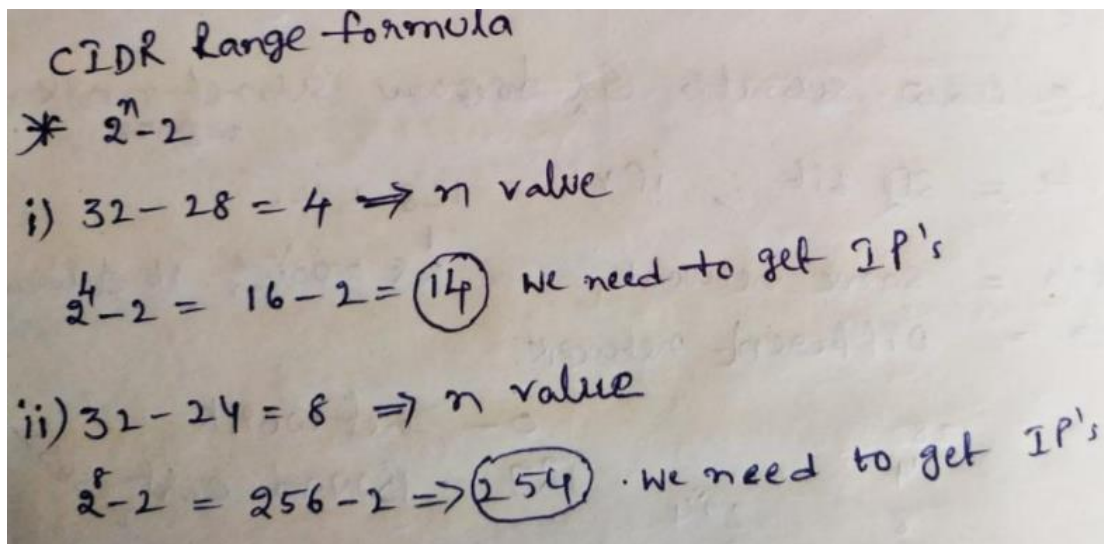 CIDR Range formula
* 2ⁿ-2
i) 32-28 = 4 ⇒ n value
2⁴-2 = 16-2 = 14 we need to get IP's
ii) 32-24 = 8 ⇒ n value
2⁸-2 = 256-2 => 254. we need to get IP's